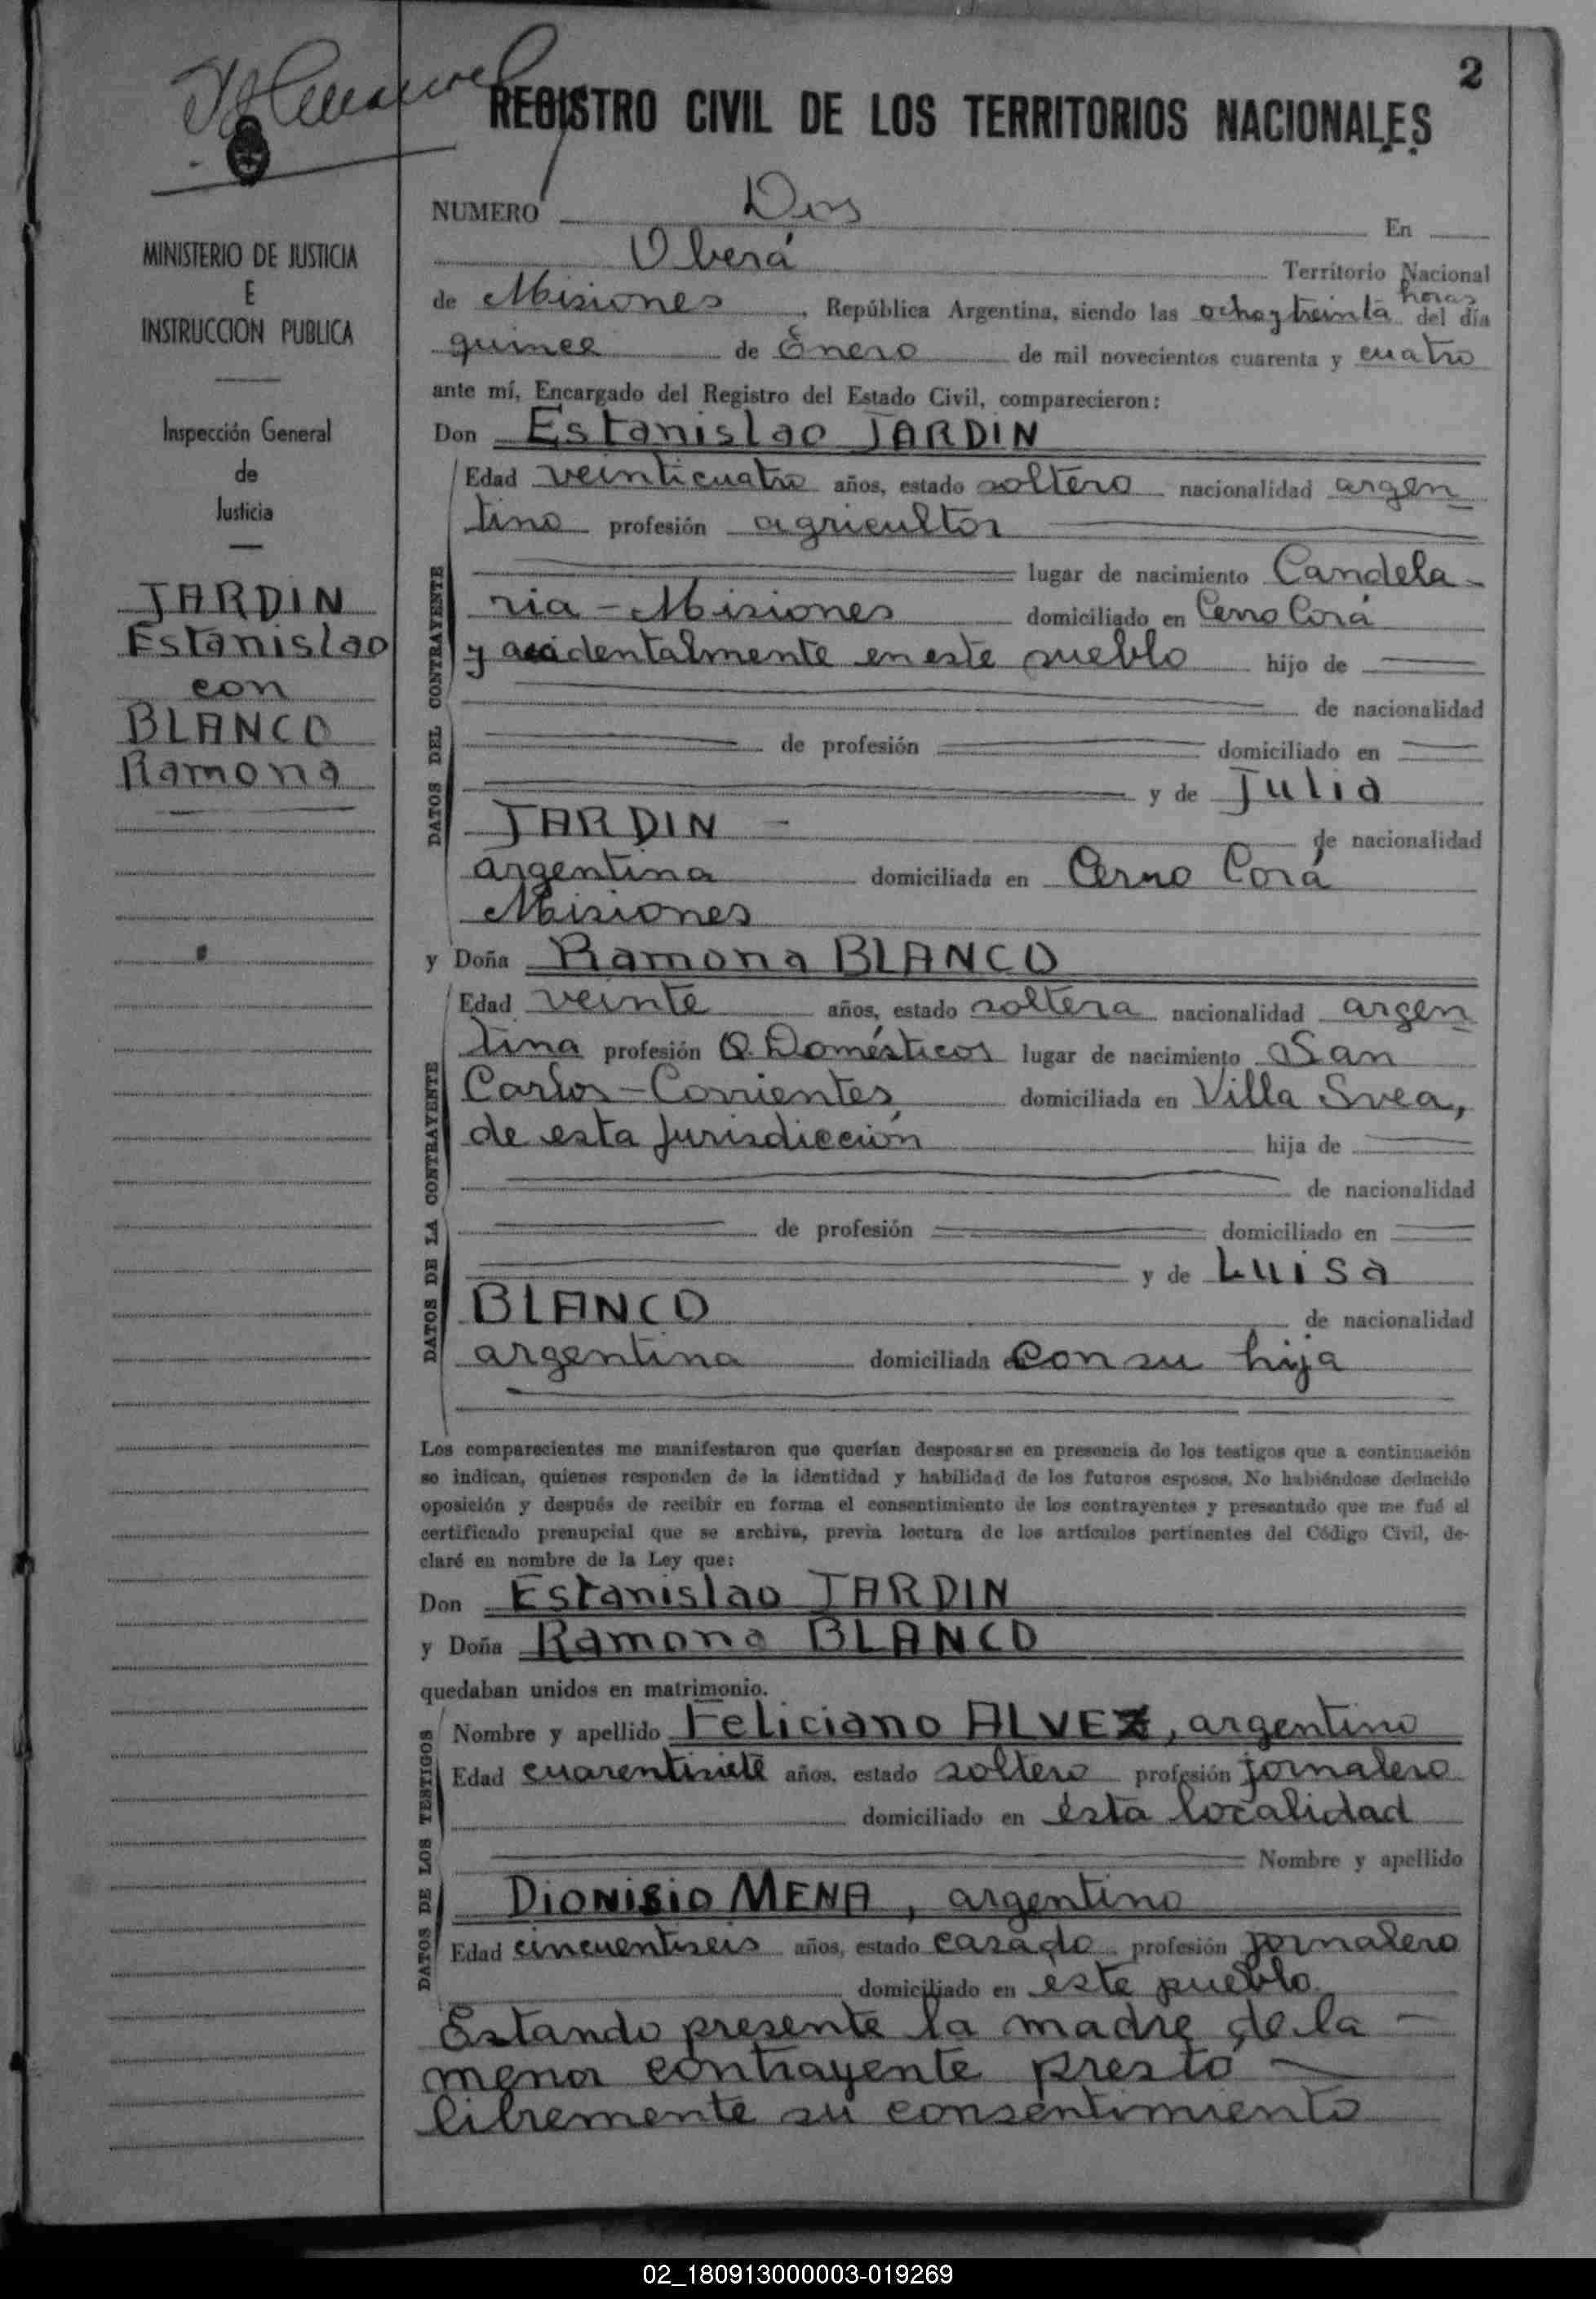 2
REGISTRO CIVIL DE LOS TERRITORIOS NACIONALES
MINISTERIO DE JUSTICIA
E
INSTRUCCION PUBLICA
Inspección General
de
Justicia
JARDIN
Estanislao
con
BLANCO
Ramona
NUMERO Dos En
Oberá Territorio Nacional
de Misiones, República Argentina, siendo las ocho y treinta horas del día
quince de Enero de mil novecientos cuarenta y cuatro
ante mí, Encargado del Registro del Estado Civil, comparecieron:
Don Estanislao JARDIN
DATOS DEL CONTRAYENTE
Edad veinticuatro años, estado soltero nacionalidad argen
tino profesión agricultor
lugar de nacimiento Candela-
ria - Misiones domiciliado en Cerro Corá
y accidentalmente en este pueblo hijo de
de nacionalidad
de profesión domiciliado en
y de Julia
JARDIN - de nacionalidad
argentina domiciliada en Cerro Corá
Misiones
y Doña Ramona BLANCO
DATOS DE LA CONTRAYENTE
Edad veinte años, estado soltera nacionalidad argen
tina profesión Q. Domésticos lugar de nacimiento San
Carlos - Corrientes domiciliada en Villa Svea,
de esta jurisdicción hija de
de nacionalidad
de profesión domiciliado en
y de Luisa
BLANCO de nacionalidad
argentina domiciliada con su hija
Los comparecientes me manifestaron que querían desposarse en presencia de los testigos que a continuación
se indican, quienes responden de la identidad y habilidad de los futuros esposos. No habiéndose deducido
oposición y después de recibir en forma el consentimiento de los contrayentes y presentado que me fué el
certificado prenupcial que se archiva, previa lectura de los artículos pertinentes del Código Civil, de-
claré en nombre de la Ley que:
Don Estanislao JARDIN
y Doña Ramona BLANCO
quedaban unidos en matrimonio.
DATOS DE LOS TESTIGOS
Nombre y apellido Feliciano ALVEZ, argentino
Edad cuarentisiete años, estado soltero profesión jornalero
domiciliado en ésta localidad
Nombre y apellido
DIONISIO MENA, argentino
Edad cincuentiseis años, estado casado profesión jornalero
domiciliado en este pueblo.
Estando presente la madre de la -
menor contrayente prestó
libremente su consentimiento
02_180913000003-019269